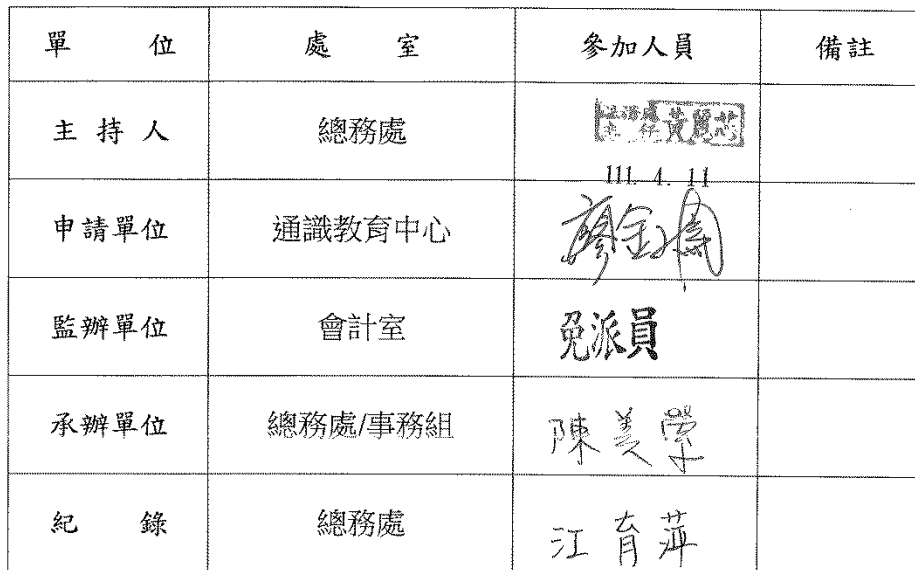 單 位 處 室 參加人員 備註
主 持 人 總務處 黃麗芯
111. 4. 11
申請單位 通識教育中心 廖金
監辦單位 會計室 免派員
承辦單位 總務處/事務組 陳美
紀 錄 總務處 江育萍